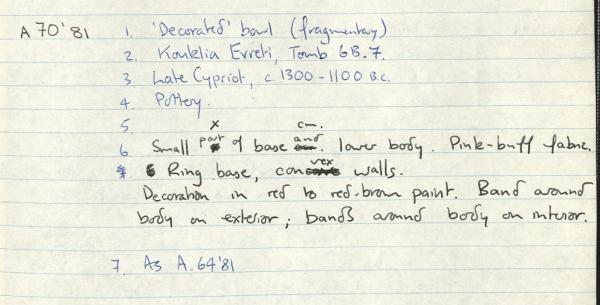 A 70'81 1. 'Decorated' bowl (fragmentary)
2. Kouklia Evreti, Tomb GB.7.
3 Late Cypriot, c. 1300 - 1100 B.C.
4. Pottery.
5 x cm.
6 Small part of base and lower body. Pink-buff fabric.
Ring base, convex walls.
Decoration in red to red-brown paint. Band around
body on exterior; bands around body on interior.
7. As A.64'81